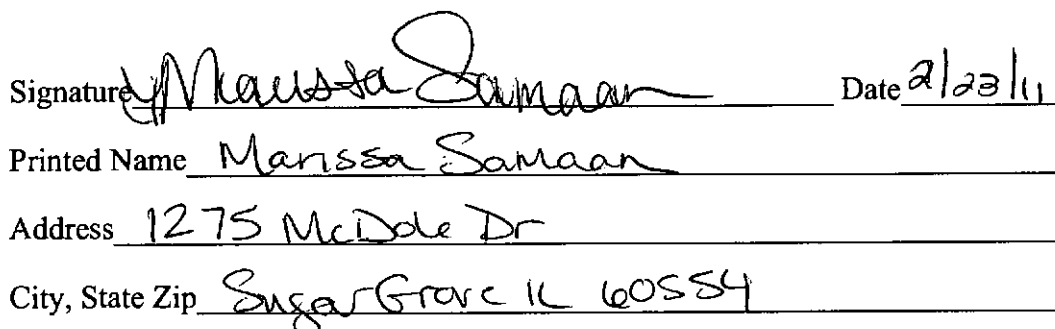 Signature Marissa Samaan Date 2/23/11
Printed Name Marissa Samaan
Address 1275 McDole Dr
City, State Zip Sugar Grove IL 60554